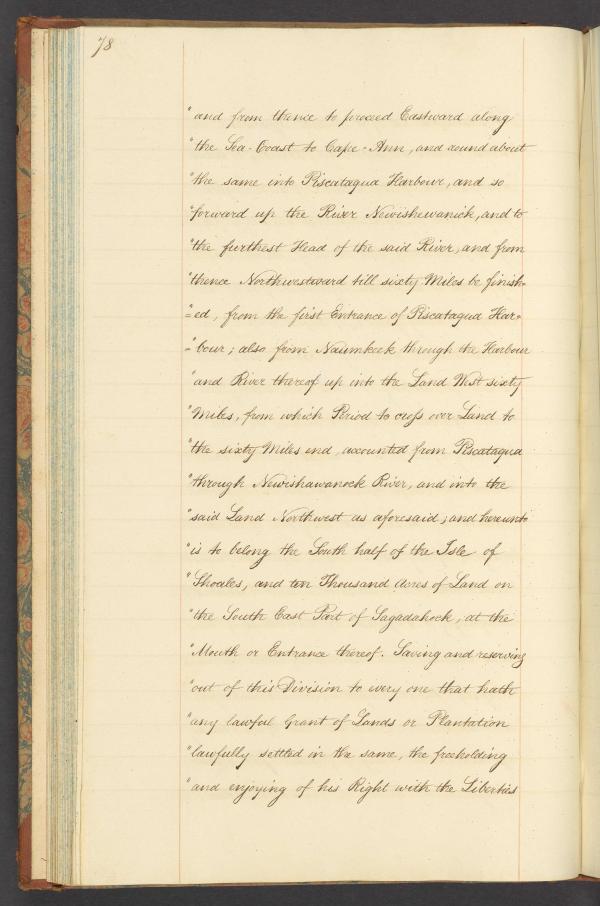 78
"and from thence to proceed Eastward along
"the Sea-Coast to Cape-Ann, and round about
"the same into Piscataqua Harbour, and so
"forward up the River Newishewanick, and to
"the furthest Head of the said River, and from
"thence Northwestward till sixty Miles be finish-
"=ed, from the first Entrance of Piscataqua Har-
"=bour; also from Naumkeek through the Harbour
"and River thereof up into the Land West sixty
"Miles, from which Period to cross over Land to
"the sixty Miles end, accounted from Piscataqua
"through Newishawanock River, and into the
"said Land Northwest as aforesaid; and hereunto
"is to belong the South half of the Isle of
"Shoales, and ten Thousand Acres of Land on
"the South East Part of Sagadahock, at the
"Mouth or Entrance thereof. Saving and reserving
"out of this Division to every one that hath
"any lawful Grant of Lands or Plantation
"lawfully settled in the same, the freeholding
"and enjoying of his Right with the Liberties